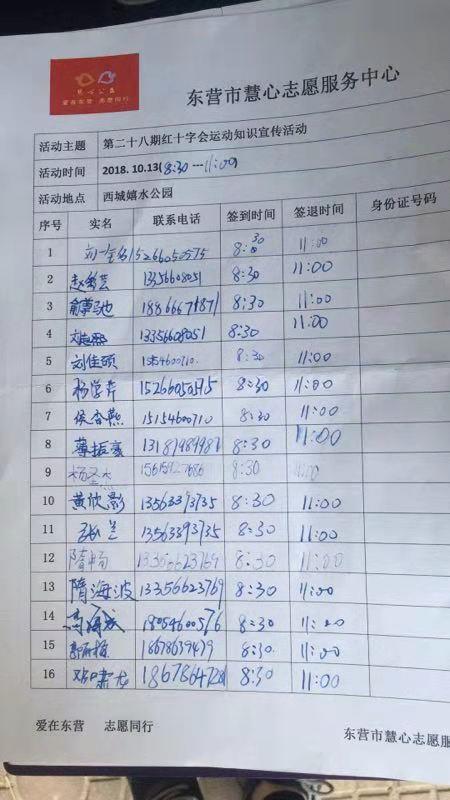 慧心公益
爱在东营 志愿同行
东营市慧心志愿服务中心
活动主题 第二十八期红十字会运动知识宣传活动
活动时间 2018.10.13(8:30---11:00)
活动地点 西城嬉水公园
序号 实名 联系电话 签到时间 签退时间 身份证号码
1 15266050575 8:30 11:00
2 13356608051 8:30 11:00
3 8:30 11:00
4 13356608051 8:30 11:00
5 刘佳硕 8:30 11:00
6 杨学芹 15266050575 8:30 11:00
7 侯香燕 15154600710 8:30 11:00
8 薄振豪 13181989981 8:30 11:00
9 8:30 11:00
10 黄欣影 13563393735 8:30 11:00
11 13563393735 8:30 11:00
12 隋畅 13356623769 8:30 11:00
13 隋海波 13356623769 8:30 11:00
14 18054600576 8:30 11:00
15 18678679479 8:30 11:00
16 8:30 11:00
爱在东营 志愿同行 东营市慧心志愿服